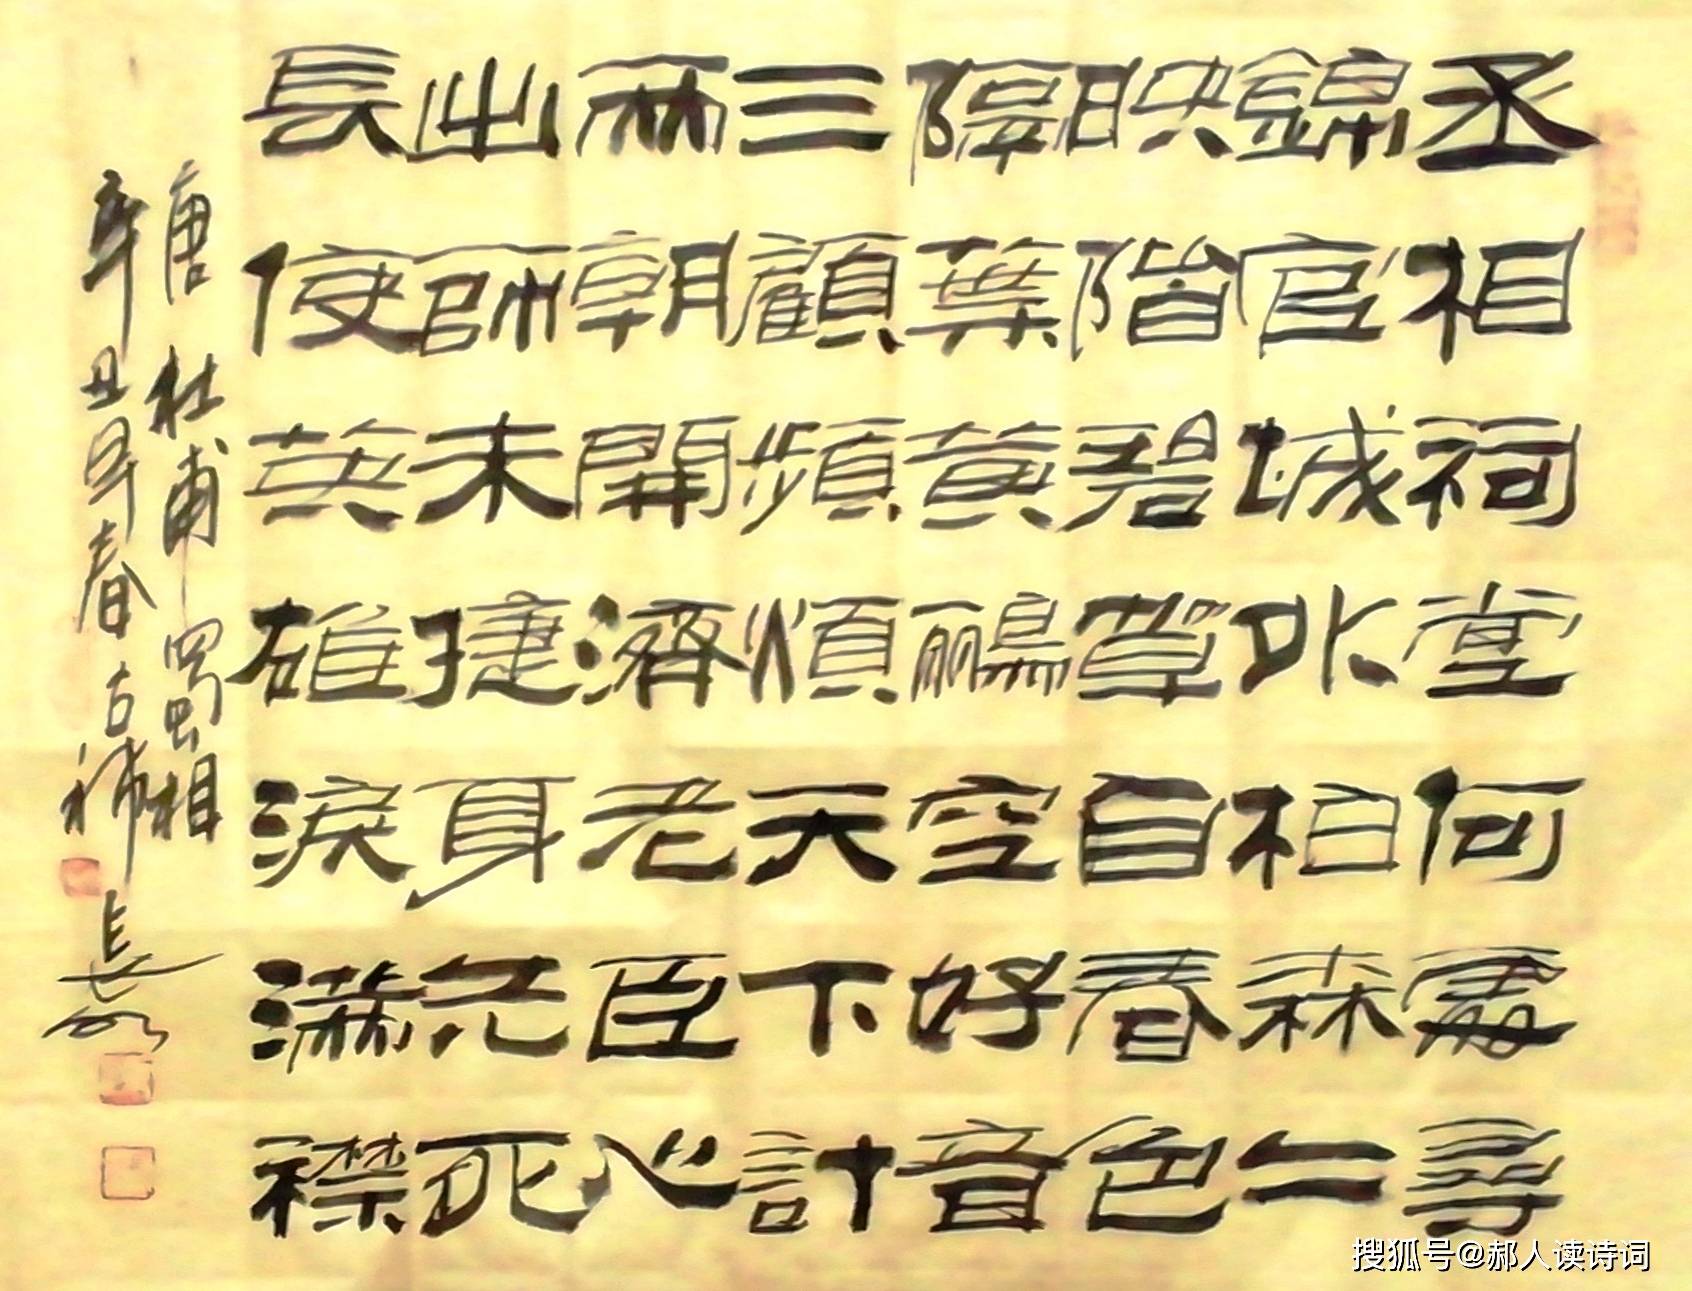 丞相祠堂何處尋
錦官城外柏森二
映階碧草自春色
隔葉黃鸝空好音
三顧頻煩天下計
兩朝開濟老臣心
出師未捷身先死
長使英雄淚滿襟
唐 杜甫 蜀相
辛丑早春古稀長
搜狐号@郝人读诗词